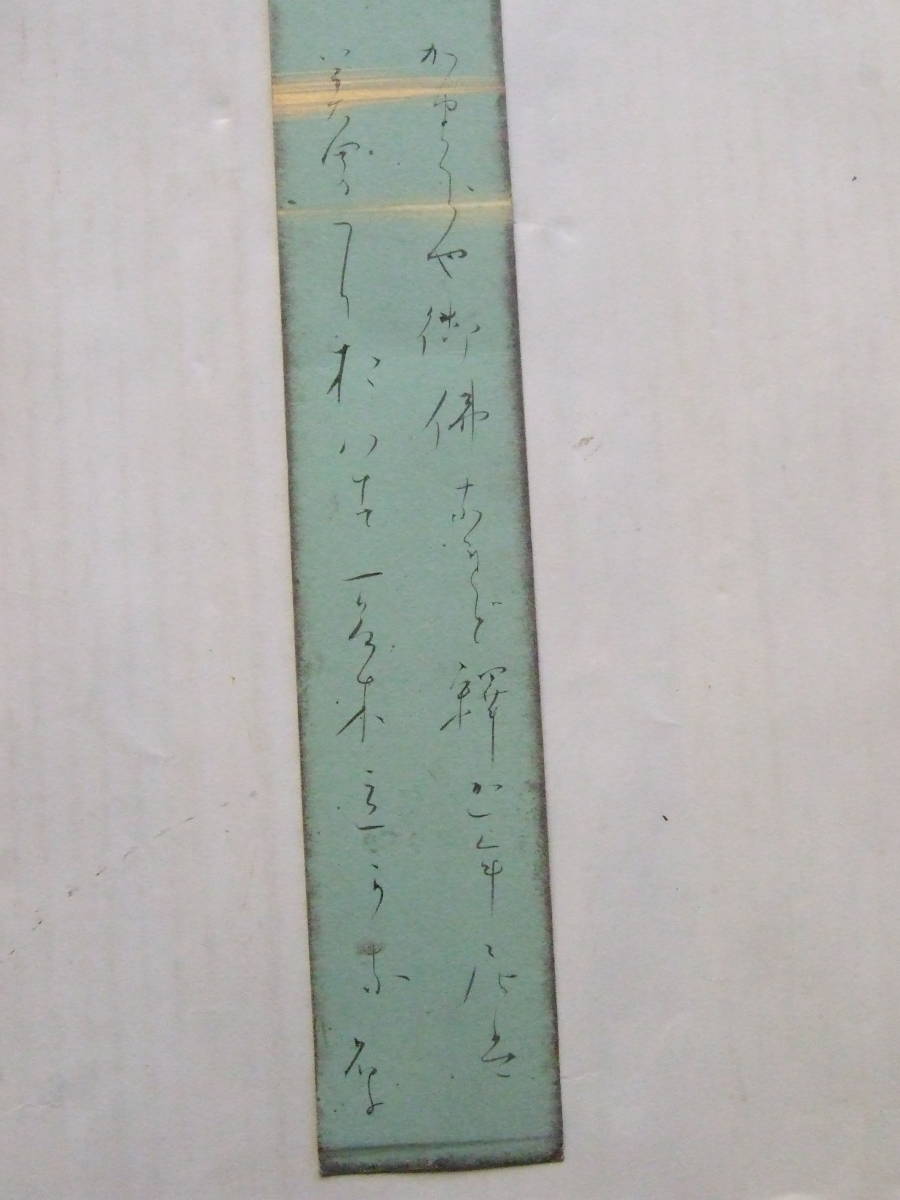 かまくらや御佛なれど釋迦牟尼は
美男におはす夏木立かな 晶子